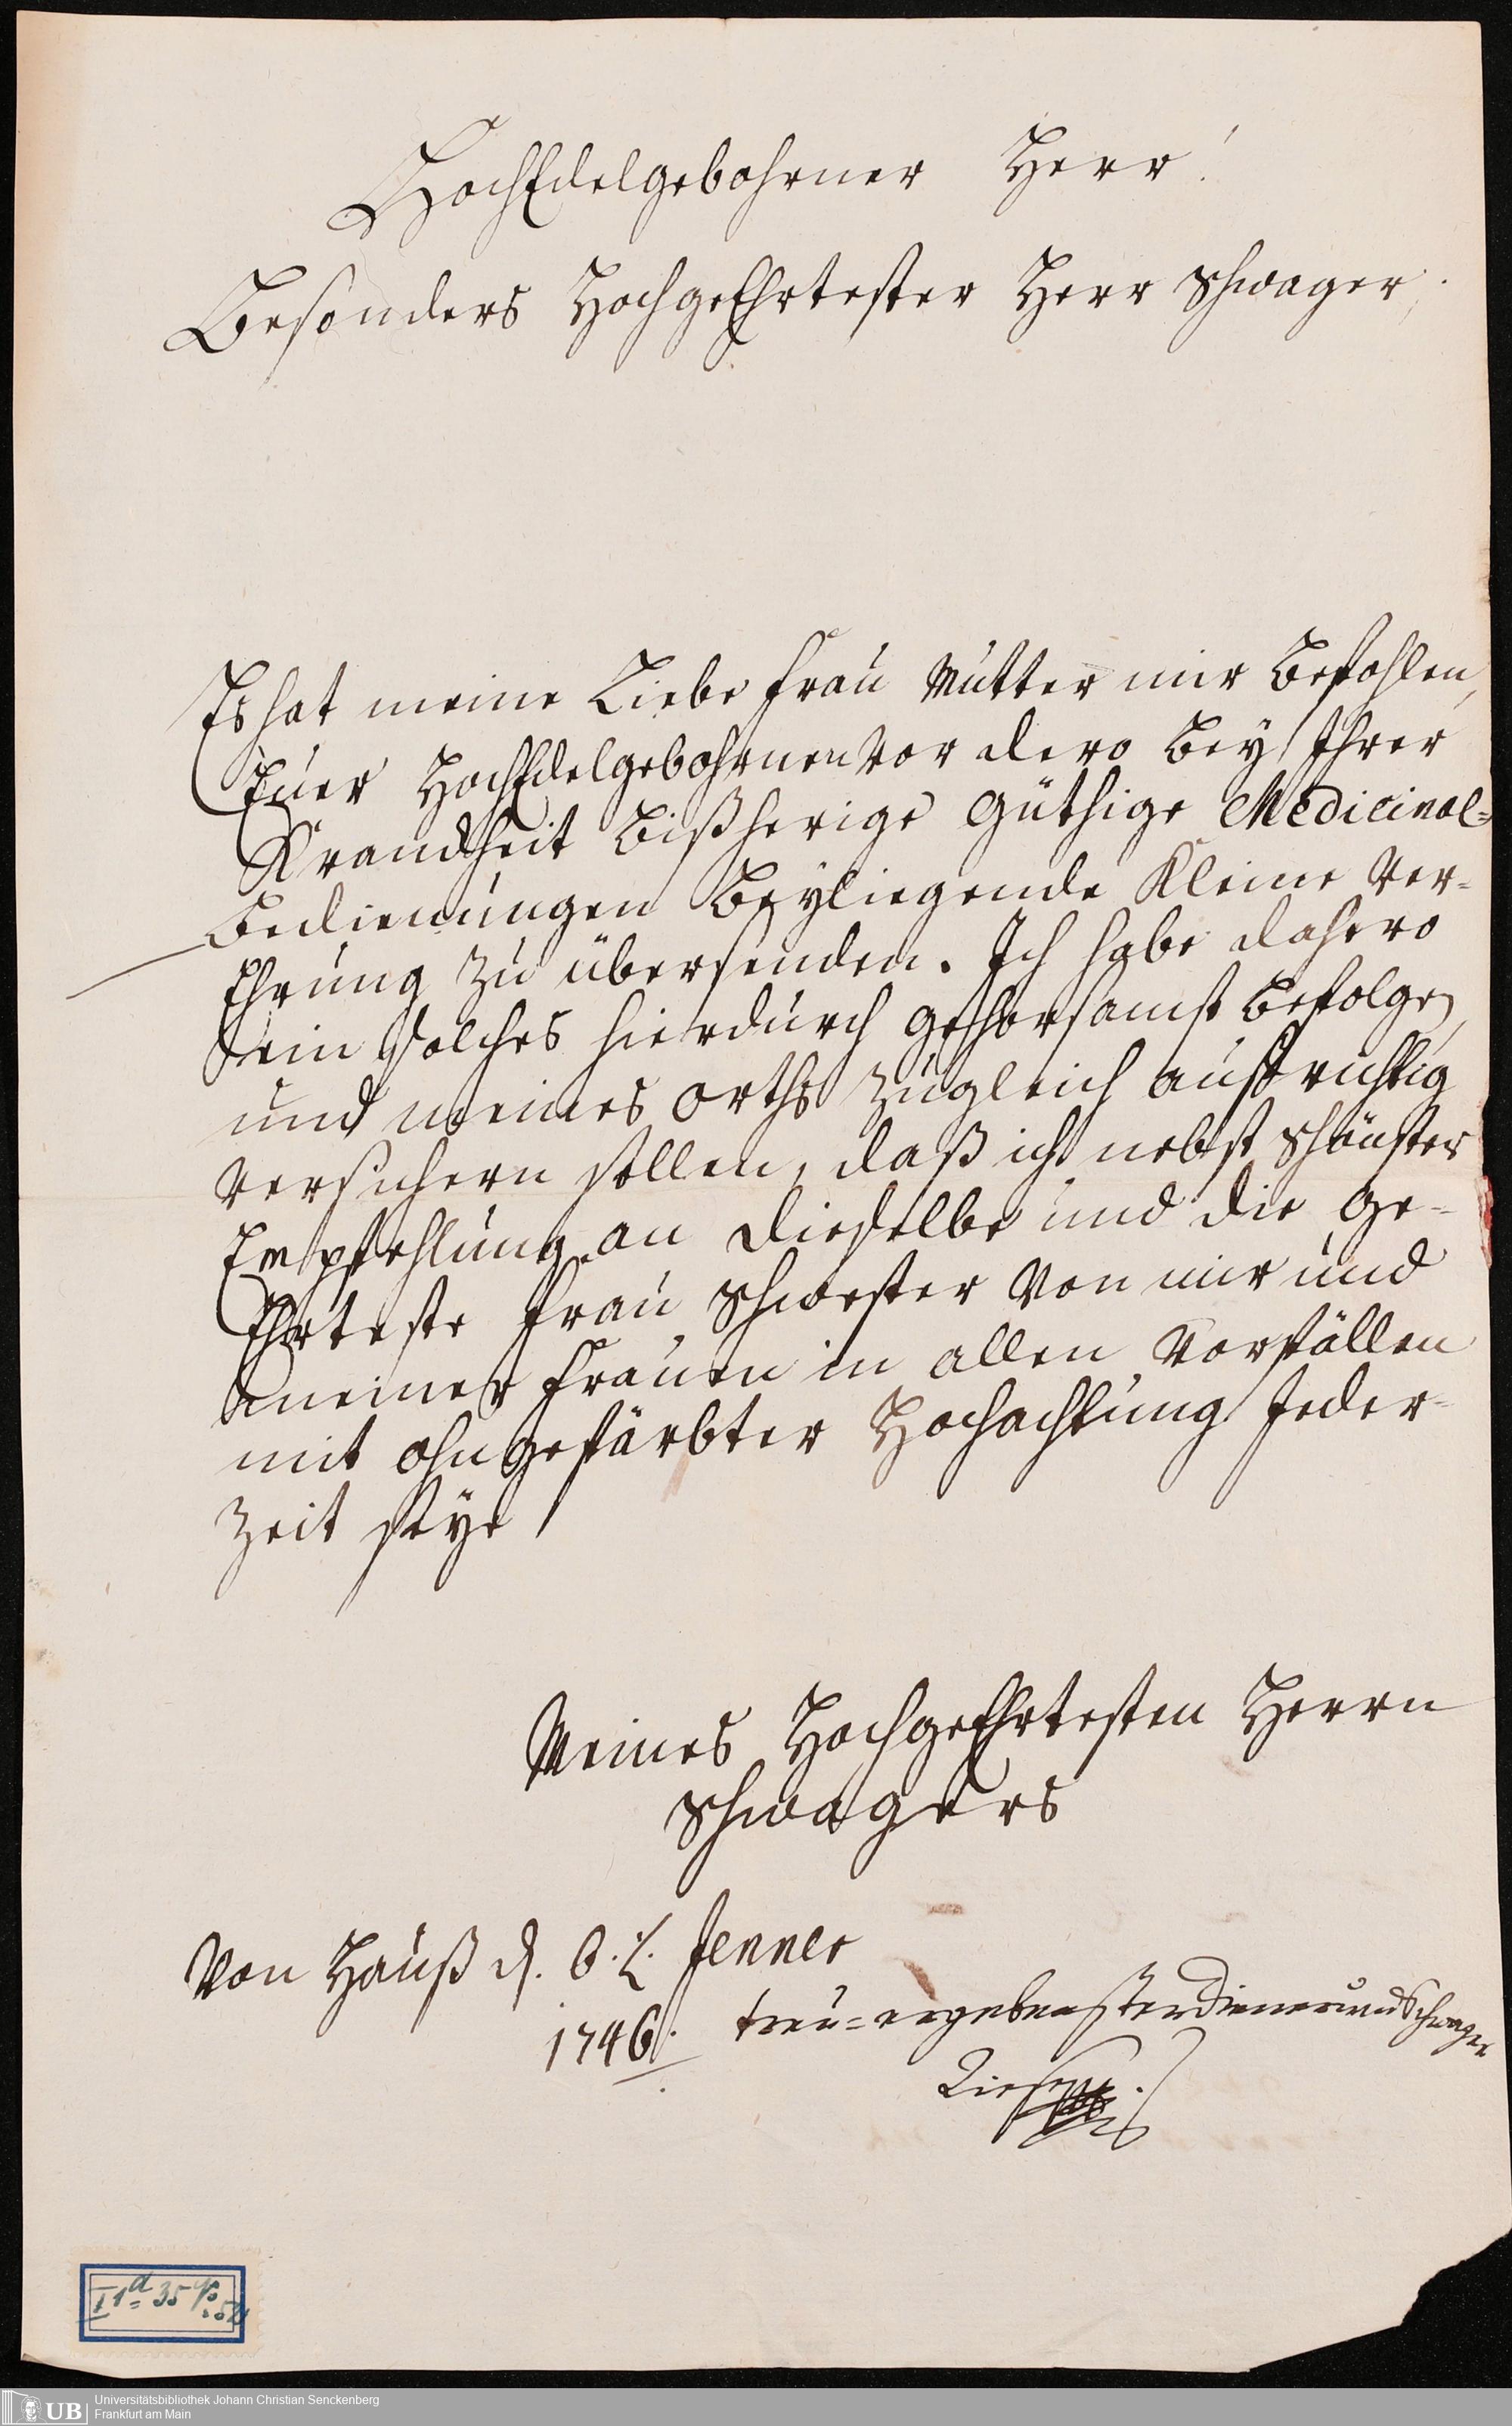 HochEdelgebohrner Herr!
Besonders HochgeEhrtester Herr Schwager,
Es hat meine Liebe Frau Mutter mir Befohlen,
Euer HochEdelgebohrnen vor dero Bey Ihrer
Kranckheit bißherige Güthige Medicinal-
Bedienungen Beyliegende Kleine Ver-
Ehrung zu übersenden. Ich habe dahero
ein solches hierdurch gehorsamst Befolgen,
und meines Orths zugleich auffrichtig
versichern sollen, daß ich nebst schönster
Empfehlung an dieselbe und die ge-
Ehrteste Frau Schwester von mir und
meiner Frauen in allen Vorfällen
mit ohngefärbter Hochachtung Jeder-
zeit seye
Meines HochgeEhrtesten Herrn
Schwagers
Von Hauß d. 6. t. Jenner
1746.
treu=ergebenster Diener und Schwager
I 1 d 35
UB
Universitätsbibliothek Johann Christian Senckenberg
Frankfurt am Main